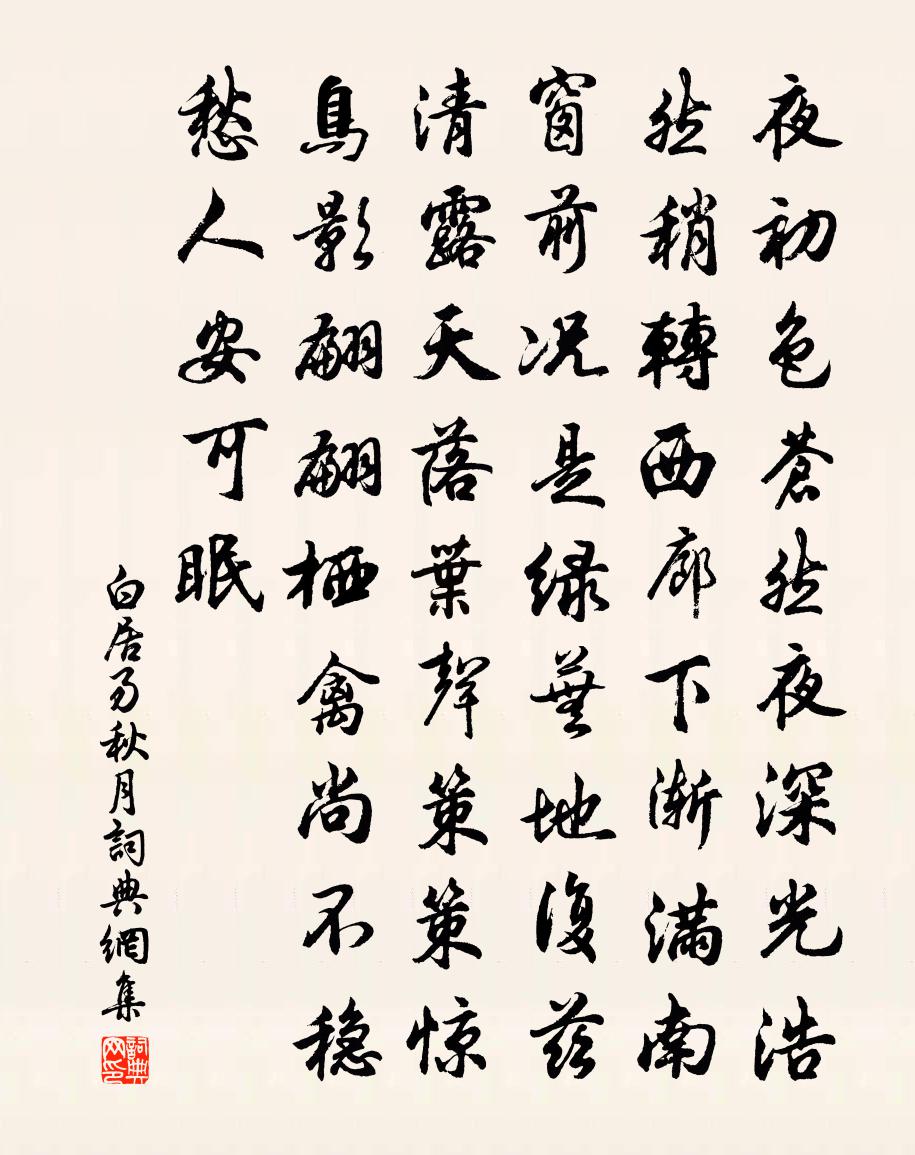 夜初色苍然夜深光浩
然稍轉西廊下漸满南
窗前况是绿蕪地復兹
清露天落葉聲策策惊
鳥影翩翩栖禽尚不稳
愁人安可眠
白居易秋月詞典網集
詞典网印